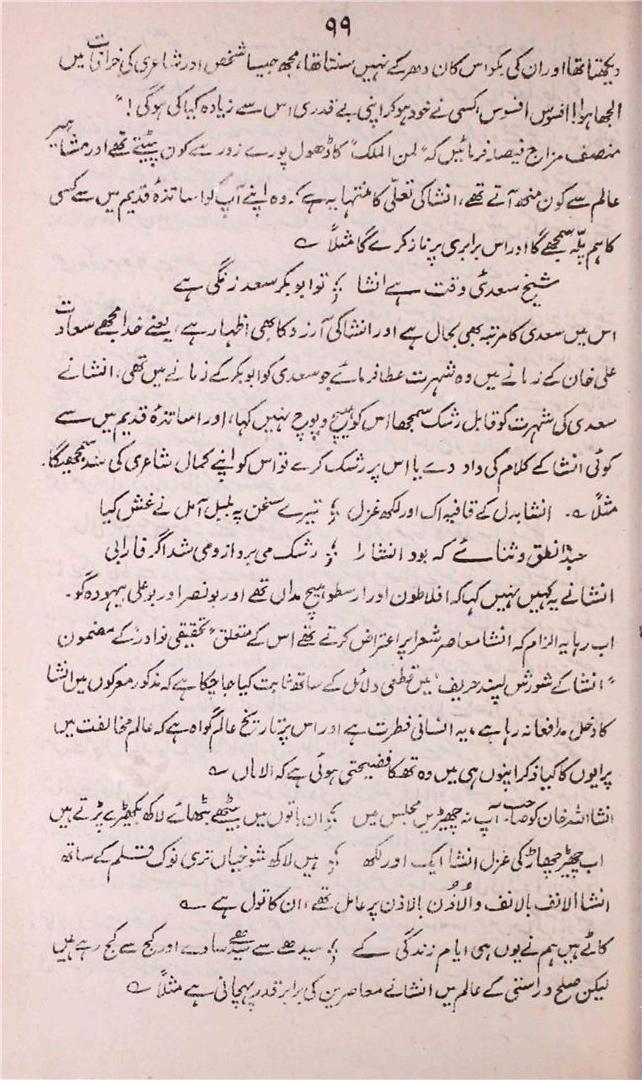 ۹۹
دیکھتا تھا اور ان کی بکواس کان دھر کے نہیں سنتا تھا، مجھ جیسا شخص اور شاعری کی خرافات میں
الجھا ہوا! افسوس افسوس کسی نے خود ہو کر اپنی بے قدری اس سے زیادہ کیا کی ہوگی!"
منصف مزاج فیصلہ فرمائیں کہ "لمن الملک" کا ڈھول پورے زور سے کون پیٹتے تھے اور مشاہیر
عالم سے کون منھ آتے تھے، انشا کی تعلّی کا منتہا یہ ہے کہ وہ اپنے آپ کو اساتذۂ قدیم میں سے کسی
کا ہم پلّہ سمجھے گا اور اس برابری پر ناز کرے گا مثلاً ؎
شیخ سعدئی وقت ہے انشا ؛ تو ابوبکر سعد زنگی ہے
اس میں سعدی کا مرتبہ بھی بحال ہے اور انشا کی آرزو کا بھی اظہار ہے، یعنے خدا مجھے سعادت
علی خان کے زمانے میں وہ شہرت عطا فرمائے جو سعدی کو ابوبکر کے زمانے میں تھی، انشا نے
سعدی کی شہرت کو قابل رشک سمجھا اس کو ہیچ و پوچ نہیں کہا، اور اساتذۂ قدیم میں سے
کوئی انشا کے کلام کی داد دے یا اس پر رشک کرے تو اس کو اپنے کمال شاعری کی سند سمجھیگا۔
مثلاً ؎ انشا بدل کے قافیہ اک اور لکھ غزل ؛ تیرے سخن پہ بلبل آمل نے غش کیا
حبذا نطق و ثنائے کہ بود انشا را ؛ رشک می برد ازو می شد اگر فارابی
انشا نے یہ کہیں نہیں کہا کہ افلاطون اور ارسطو ہیچ مداں تھے اور بونصر اور بوعلی بیہودہ گو۔
اب رہا یہ الزام کہ انشا معاصر شعرا پر اعتراض کرتے تھے اس کے متعلق "تحقیقی نوادر" کے مضمون
"انشا کے شورش پسند حریف" میں قطعی دلائل کے ساتھ ثابت کیا جا چکا ہے کہ مذکور معرکوں میں انشا
کا دخل مدافعانہ رہا ہے، یہ انسانی فطرت ہے اور اس پر تاریخ عالم گواہ ہے کہ عالم مخالفت میں
پرایوں کا کیا ذکر اپنوں ہی میں وہ تھکا فضیحتی ہوئی ہے کہ الاماں ؎
انشا اللہ خان کو صاحب آپ نہ چھیڑیں مجلس میں ؛ ان باتوں میں بیٹھے بٹھائے لاکھ بکھیڑے پڑتے ہیں
اب چھیڑ چھاڑ کی غزل انشا ایک اور لکھ ؛ ہیں لاکھ شوخیاں تری نوک قلم کے ساتھ
انشا الانف بالانف والاُذُن بالاُذن پر عامل تھے، ان کا قول ہے ؎
کاٹے ہیں ہم نے یوں ہی ایام زندگی کے ؛ سیدھے سے سیدھے سادے اور کج سے کج رہے ہیں
لیکن صلح و راستی کے عالم میں انشا نے معاصرین کی برابر قدر پہچانی ہے مثلاً ؎